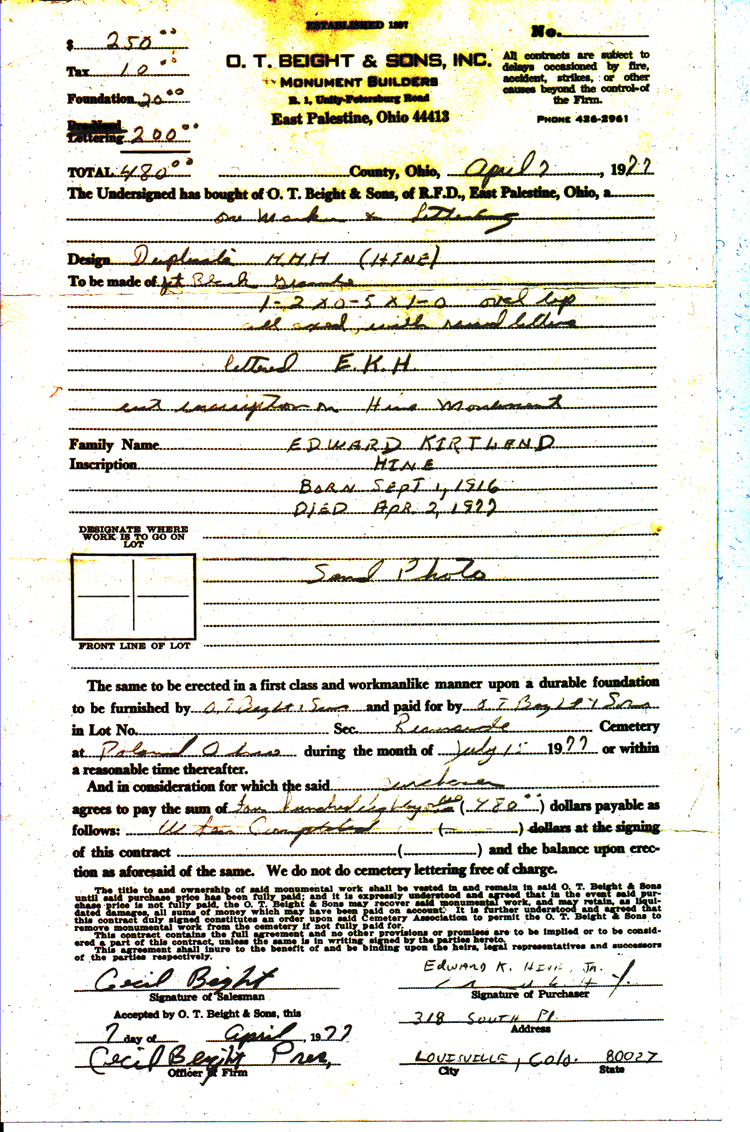 ESTABLISHED 1897
No.
$ 250.00
O. T. BEIGHT & SONS, INC.
MONUMENT BUILDERS
R. 1, Unity-Petersburg Road
East Palestine, Ohio 44413
All contracts are subject to
delays occasioned by fire,
accident, strikes, or other
causes beyond the control of
the Firm.
PHONE 426-2961
Tax 10.00
Foundation 20.00
Lettering 200.00
TOTAL 480.00
County, Ohio, April 7, 1977
The Undersigned has bought of O. T. Beight & Sons, of R.F.D., East Palestine, Ohio, a
one Marker & Lettering
Design Duplicate H.M.H (HINE)
To be made of Jet Black Granite
1-2 x 0-5 x 1-0 oval top
all axed, with raised letters
lettered E.K.H.
cut inscription on Hine Monument
Family Name EDWARD KIRTLAND
Inscription HINE
BORN SEPT 1, 1916
DIED APR. 2, 1977
DESIGNATE WHERE
WORK IS TO GO ON
LOT
Send Photo
FRONT LINE OF LOT
The same to be erected in a first class and workmanlike manner upon a durable foundation
to be furnished by O. T. Beight & Sons and paid for by O. T. Beight & Sons
in Lot No. Sec. Riverside Cemetery
at Poland Ohio during the month of July 1 1977 or within
a reasonable time thereafter.
And in consideration for which the said purchaser
agrees to pay the sum of four hundred eighty (480.00) dollars payable as
follows: When Completed ( ) dollars at the signing
of this contract ( ) and the balance upon erec-
tion as aforesaid of the same. We do not do cemetery lettering free of charge.
The title to and ownership of said monumental work shall be vested in and remain in said O. T. Beight & Sons
until said purchase price has been fully paid; and it is expressly understood and agreed that in the event said pur-
chase price is not fully paid, the O. T. Beight & Sons may recover said monumental work, and may retain, as liqui-
dated damages, all sums of money which may have been paid on account. It is further understood and agreed that
this contract duly signed constitutes an order upon said Cemetery Association to permit the O. T. Beight & Sons to
remove monumental work from the cemetery if not fully paid for.
This contract contains the full agreement and no other provisions or promises are to be implied or to be consid-
ered a part of this contract, unless the same is in writing signed by the parties hereto.
This agreement shall inure to the benefit of and be binding upon the heirs, legal representatives and successors
of the parties respectively.
EDWARD K. HINE, JR.
Cecil Beight
Signature of Salesman
Signature of Purchaser
Accepted by O. T. Beight & Sons, this
318 SOUTH PL.
Address
7 day of April 1977
Cecil Beight Pres,
Officer of Firm
LOUISVILLE, COLO. 80027
City State